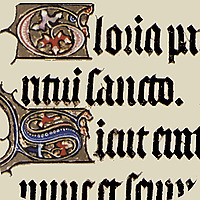 Gloria pr
ritui sancto.
Sicut erat
nunc et semp